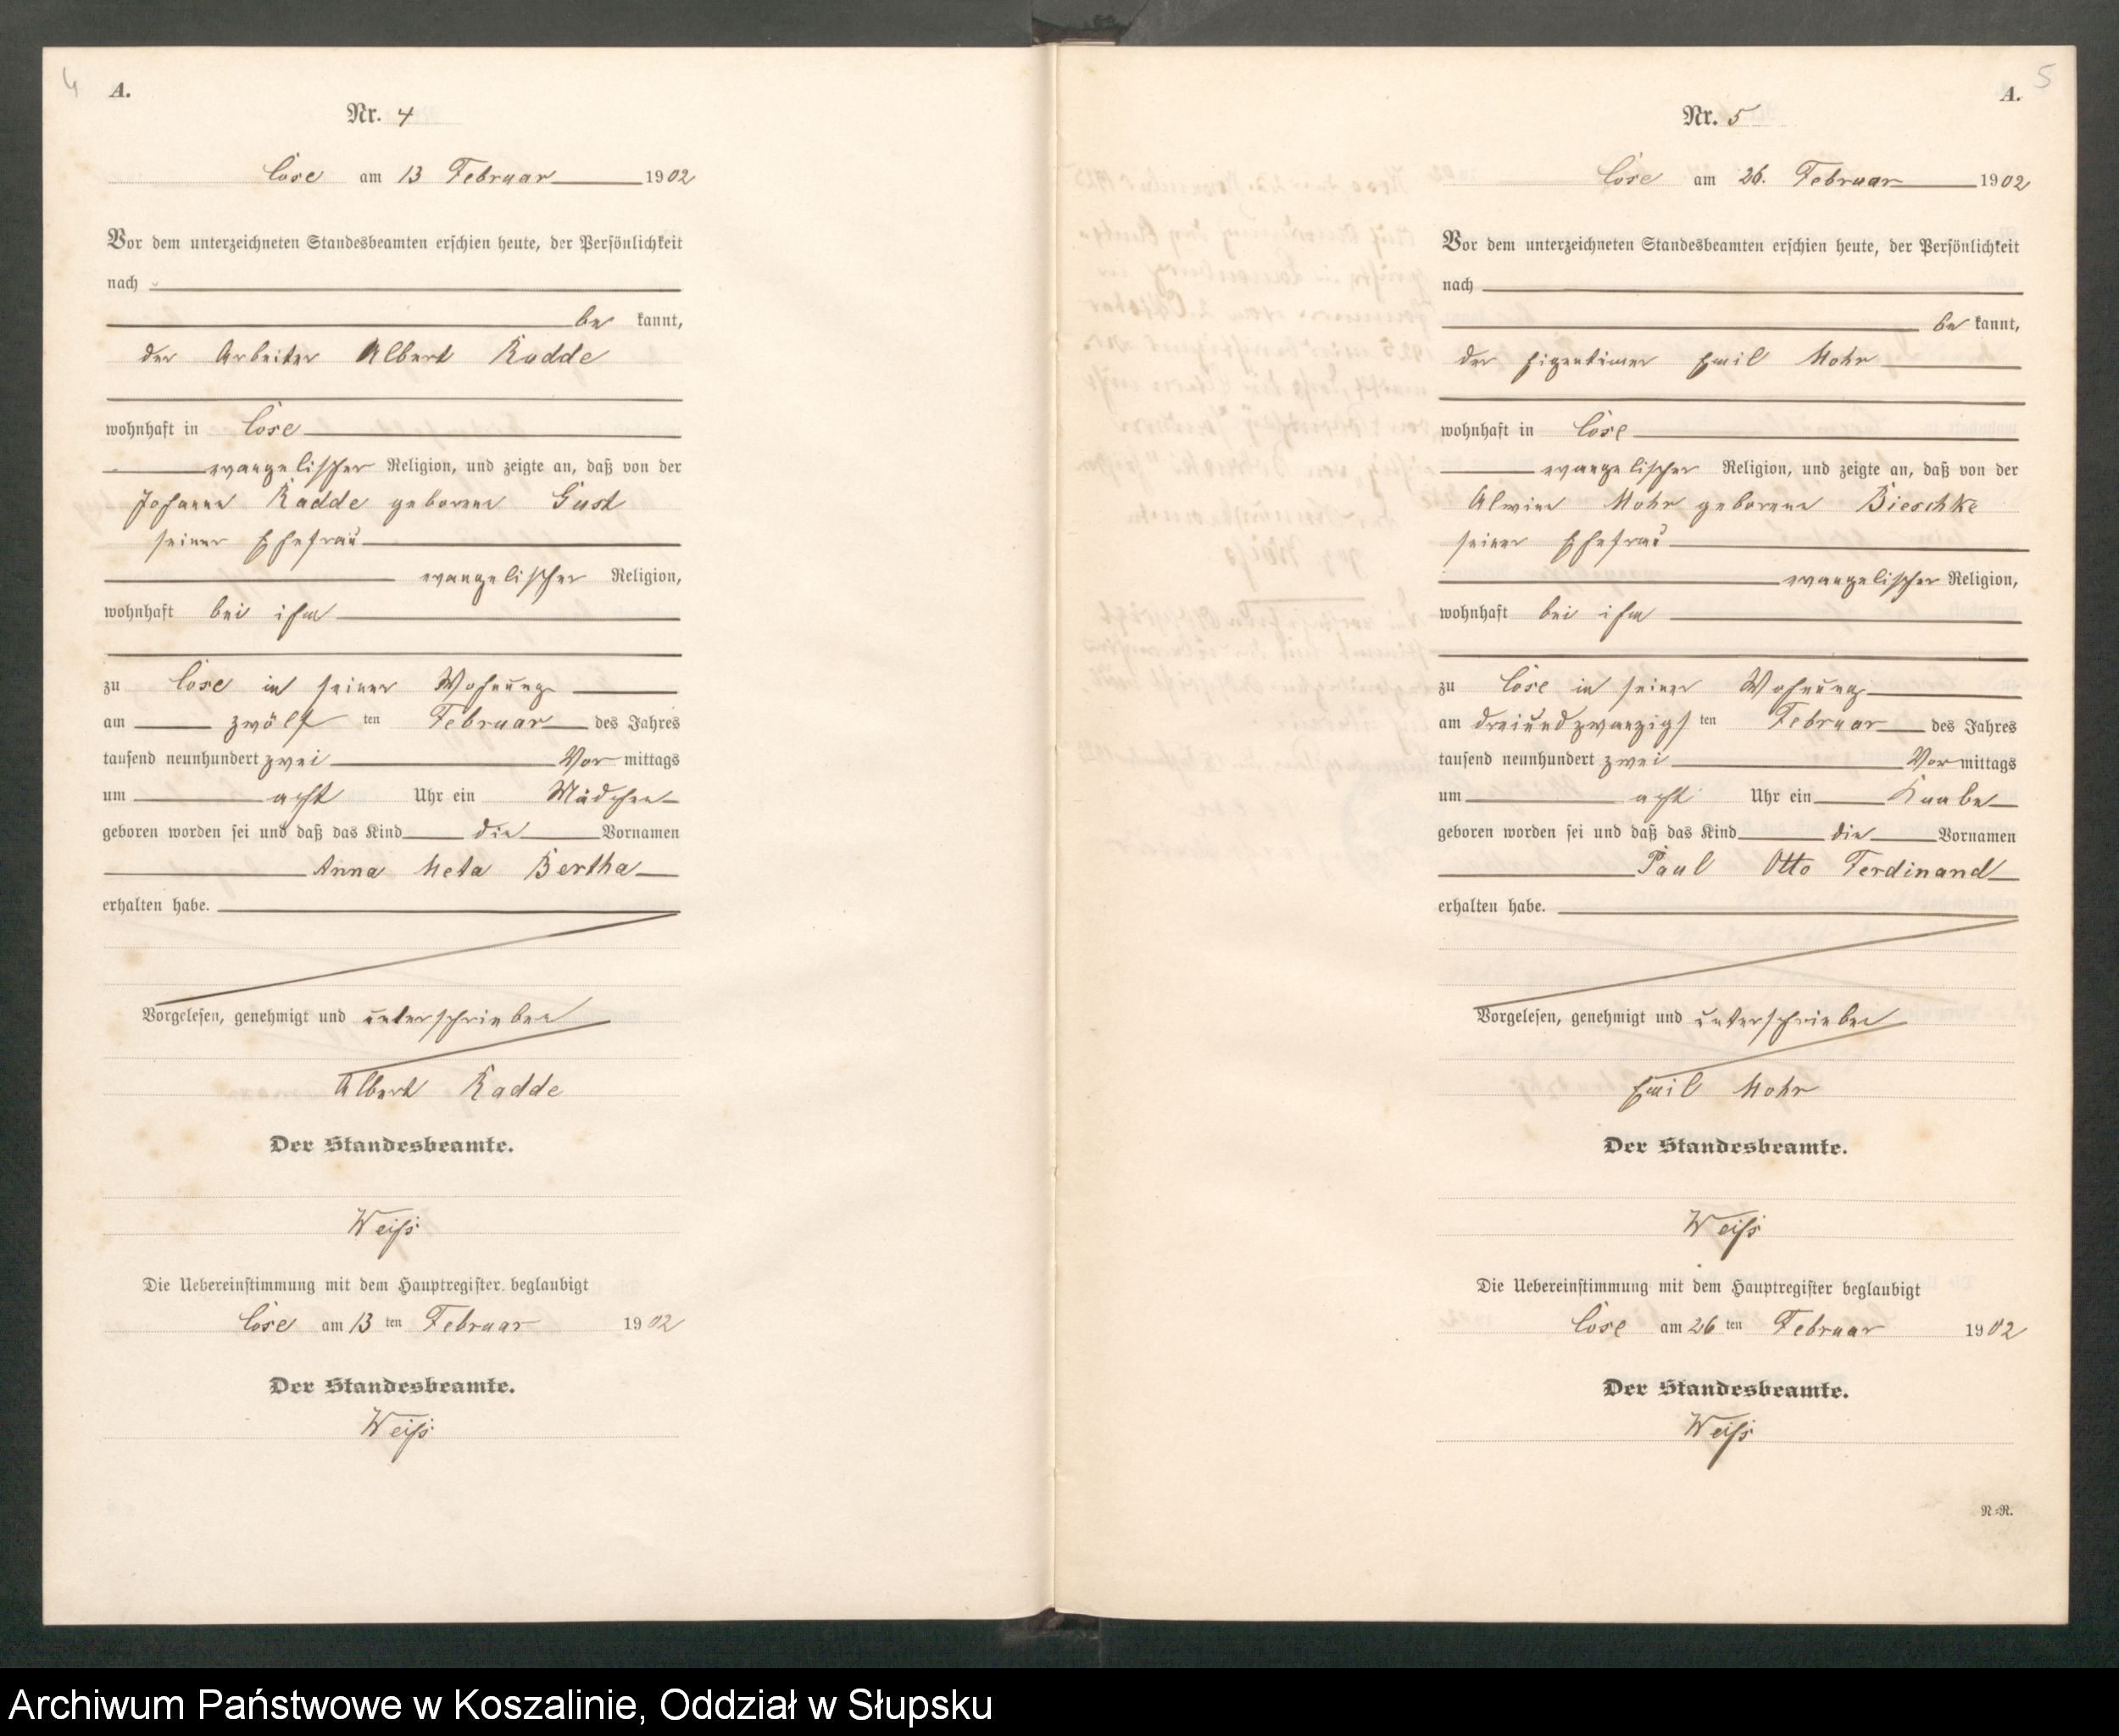 4
A.
Nr. 4
Cose am 13 Februar 1902
Vor dem unterzeichneten Standesbeamten erschien heute, der Persönlichkeit
nach
be kannt,
der Arbeiter Albert Radde
wohnhaft in Cose
evangelischer Religion, und zeigte an, daß von der
Johanne Radde geborene Gust
seiner Ehefrau
evangelischer Religion,
wohnhaft bei ihm
zu Cose in seiner Wohnung
am zwölf ten Februar des Jahres
tausend neunhundert zwei Vor mittags
um acht Uhr ein Mädchen
geboren worden sei und daß das Kind die Vornamen
Anna Meta Bertha
erhalten habe.
Vorgelesen, genehmigt und unterschrieben
Albert Radde
Der Standesbeamte.
Weiß
Die Uebereinstimmung mit dem Hauptregister beglaubigt
Cose am 13 ten Februar 1902
Der Standesbeamte.
Weiß
5
A.
Nr. 5
Cose am 26. Februar 1902
Vor dem unterzeichneten Standesbeamten erschien heute, der Persönlichkeit
nach
be kannt,
der Eigentümer Emil Mohr
wohnhaft in Cose
evangelischer Religion, und zeigte an, daß von der
Alwine Mohr geborene Bieschke
seiner Ehefrau
evangelischer Religion,
wohnhaft bei ihm
zu Cose in seiner Wohnung
am dreiundzwanzigs ten Februar des Jahres
tausend neunhundert zwei Vor mittags
um acht Uhr ein Knabe
geboren worden sei und daß das Kind die Vornamen
Paul Otto Ferdinand
erhalten habe.
Vorgelesen, genehmigt und unterschrieben
Emil Mohr
Der Standesbeamte.
Weiß
Die Uebereinstimmung mit dem Hauptregister beglaubigt
Cose am 26 ten Februar 1902
Der Standesbeamte.
Weiß
N=R.
Archiwum Państwowe w Koszalinie, Oddział w Słupsku